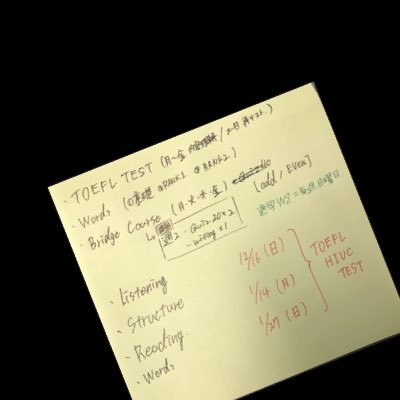 ・TOEFL TEST (月〜金 / 土日 再テスト.)
・Words (①基礎 ②RANK1 ③RANK2)
・Bridge Course (月・火・木・金) [odd / Even]
週2 - Quiz 20×2
- writing×1
WS = 毎週日曜日
・Listening
・Structure
・Reading.
・Words
12/16 (日)
1/14 (月)
1/27 (日)
TOEFL
HIUC
TEST